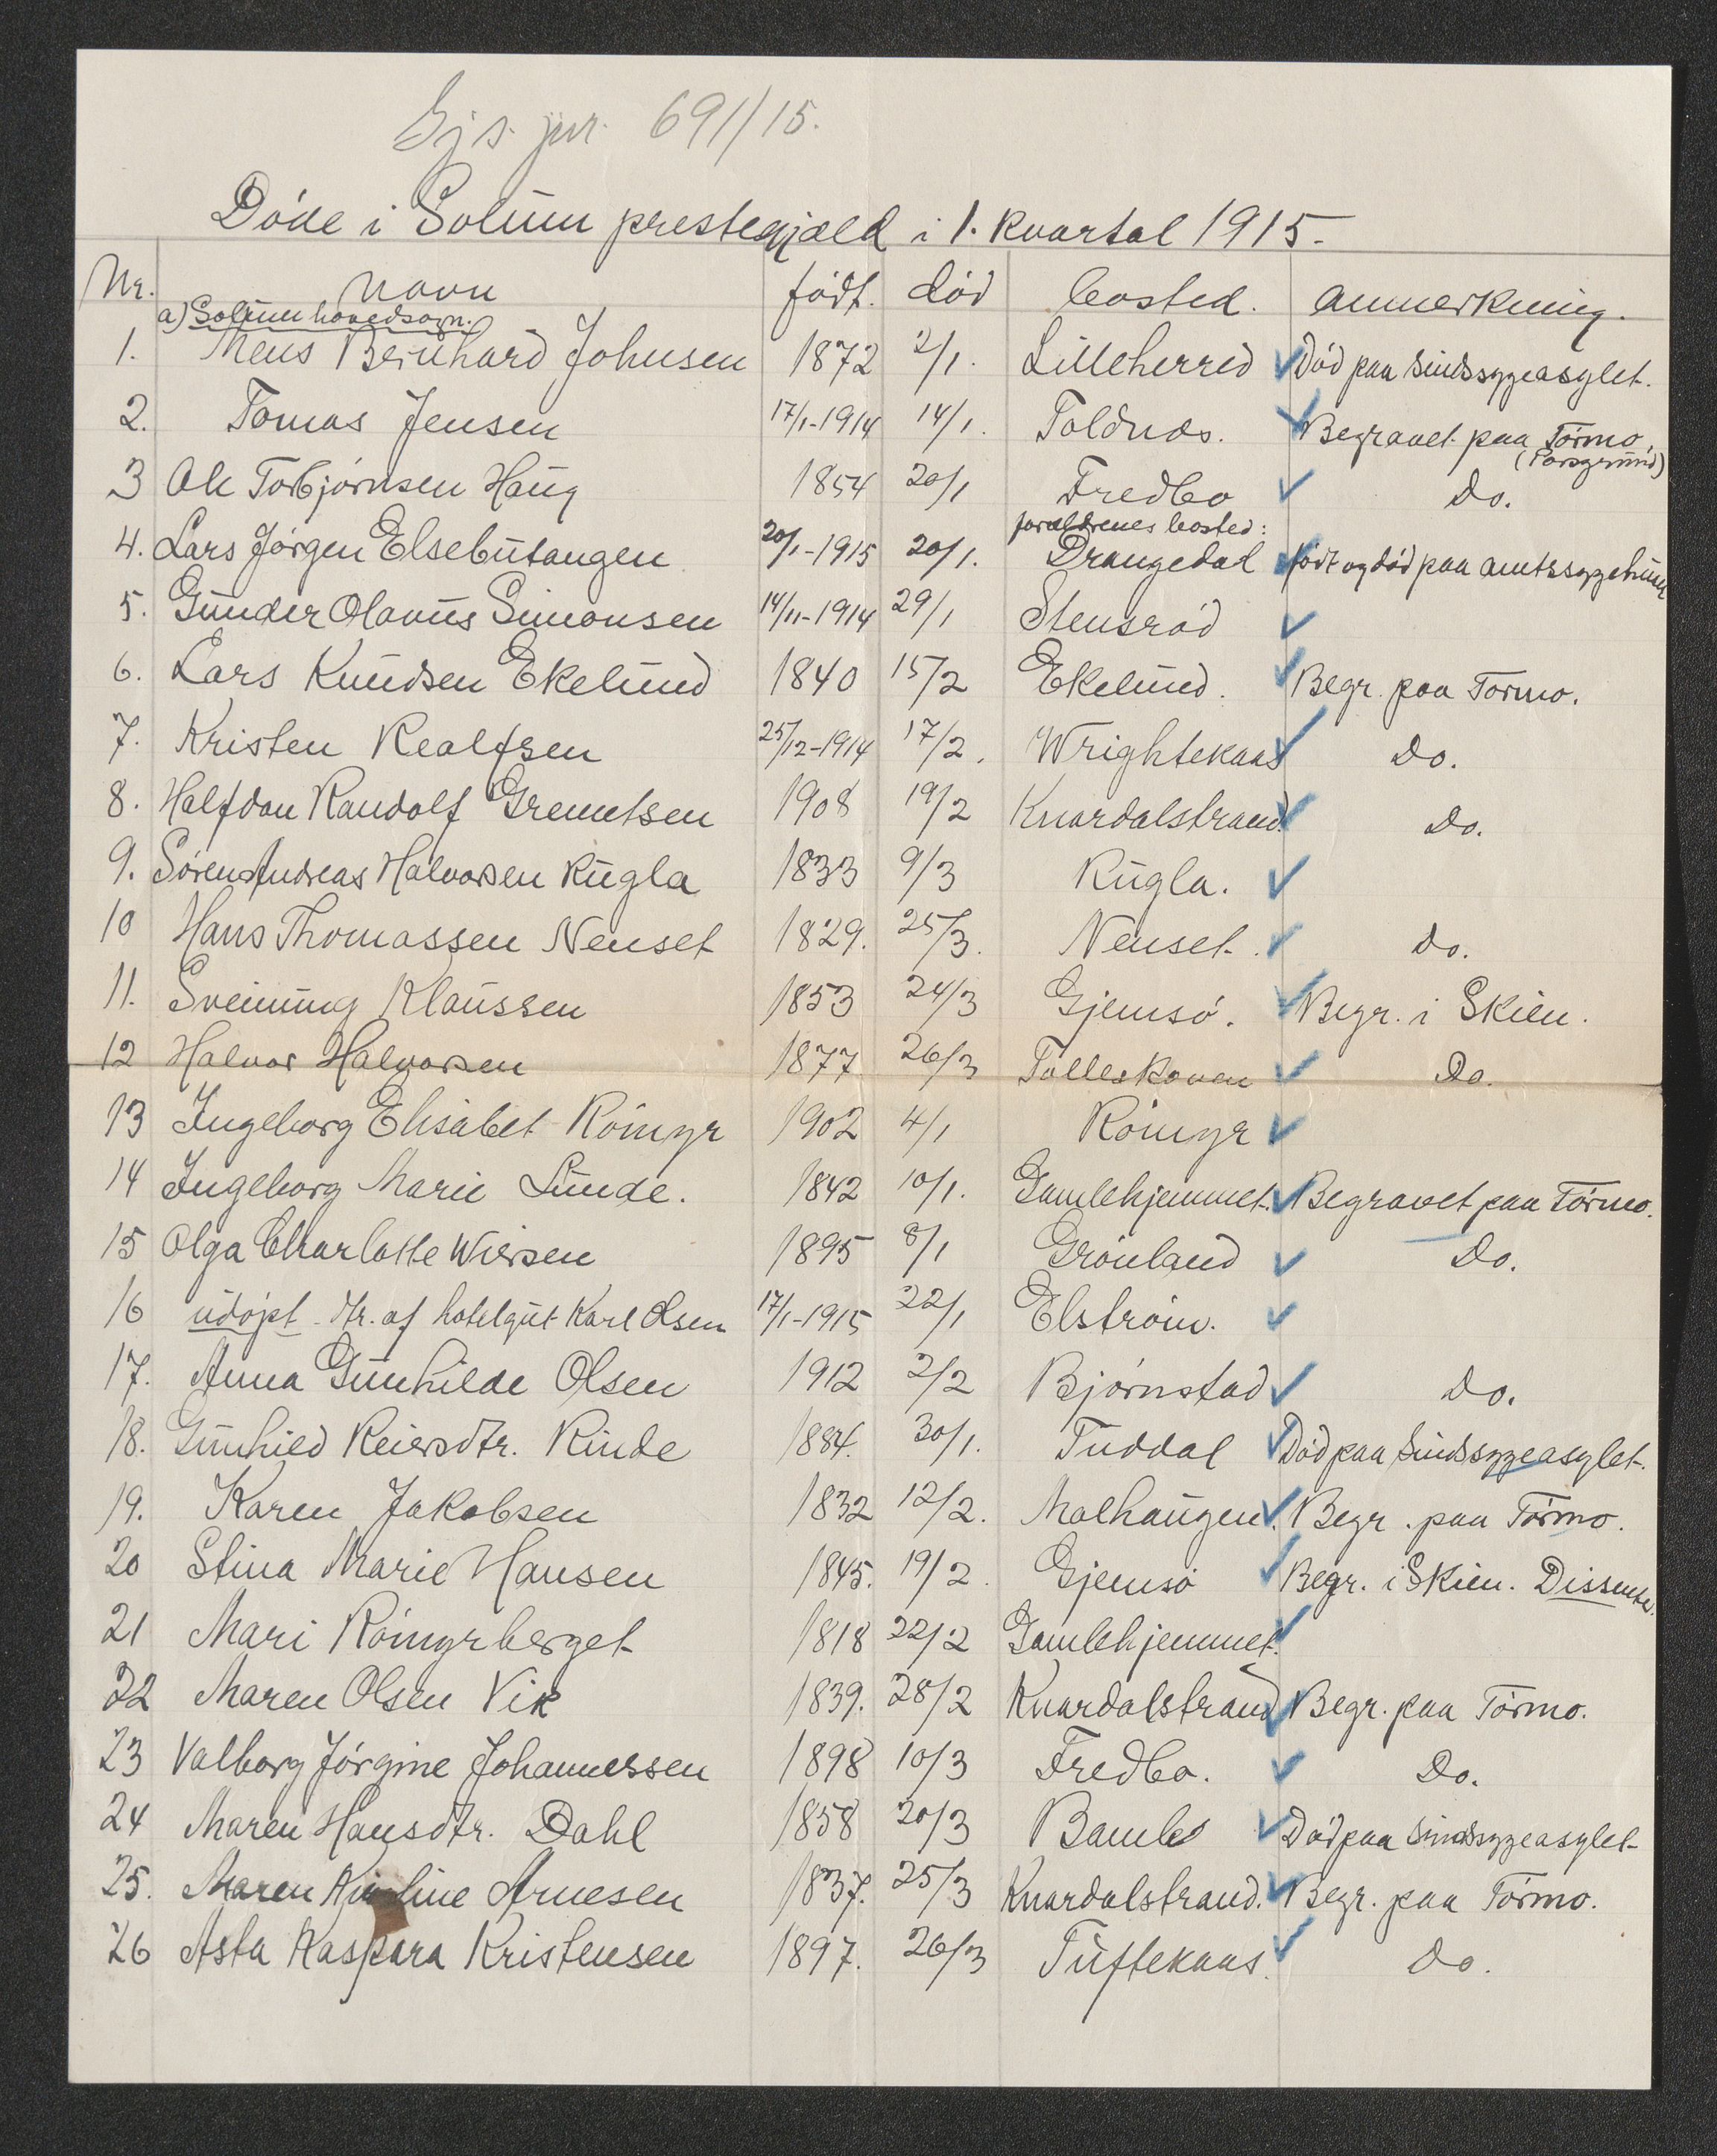 Gjs. jnr. 691/15.
Døde i Solum prestegjæld i 1. kvartal 1915.
Nr. Navn født. død bosted. anmerkning.
a) Solum hovedsogn.
1. Mens Bernhard Johnsen 1872 2/1. Lilleherred Død paa sindssygeasylet.
2. Tomas Jensen 17/1-1914 14/1. Toldnæs. Begravet paa Tormo.
(Porsgrund)
3 Ole Torbjørnsen Haug 1854 20/1 Fredbo Do.
forældrenes bosted:
4. Lars Jørgen Elsebutangen 20/1-1915 20/1. Drangedal født og død paa amtssygehuset
5. Gunder Olavus Simonsen 14/11-1914 29/1 Stensrød
6. Lars Knudsen Ekelund 1840 15/2 Ekelund. Begr. paa Tormo.
7. Kristen Realfsen 25/12-1914 17/2. Wrightekaas Do.
8. Halfdan Randolf Gremetsen 1908 19/2 Knardalstrand. Do.
9. Søren Andreas Halvorsen Rugla 1833 9/3 Rugla.
10 Hans Thomassen Nenset 1829. 25/3. Nenset. Do.
11. Sveinung Klaussen 1853 24/3 Gjemsø. Begr. i Skien.
12 Halvor Halvorsen 1877 26/3 Tolleskoven Do.
13 Ingeborg Elisabet Römyr 1902 4/1 Römyr
14 Ingeborg Marie Lunde. 1842 10/1. Gamlehjemmet. Begravet paa Tormo.
15 Olga Charlotte Wiersen 1895 8/1 Grønland Do.
16 udøpt. Dtr. af hotelgut Karl Olsen 17/1-1915 22/1 Elstrøm.
17. Anna Gunhilde Olsen 1912 2/2 Bjørnstad Do.
18. Gunhild Reiersdtr. Rinde 1884. 30/1. Tuddal Død paa sindssygeasylet.
19. Karen Jakobsen 1832 12/2. Malhaugen. Begr. paa Tormo.
20 Stina Marie Hansen 1845. 19/2. Gjemsø Begr. i Skien. Dissenter.
21 Mari Römyrberget 1818 22/2 Gamlehjemmet.
22 Maren Olsen Vik 1839. 28/2 Knardalstrand Begr. paa Tormo.
23 Valborg Jørgine Johannessen 1898 10/3 Fredbo. Do.
24 Maren Hansdtr. Dahl 1858 20/3 Bamle Død paa sindssygeasylet
25. Maren Arnesen 1837. 25/3 Knardalstrand. Begr. paa Tormo.
26 Asta Kaspara Kristensen 1897. 26/3 Tuftekaas. Do.